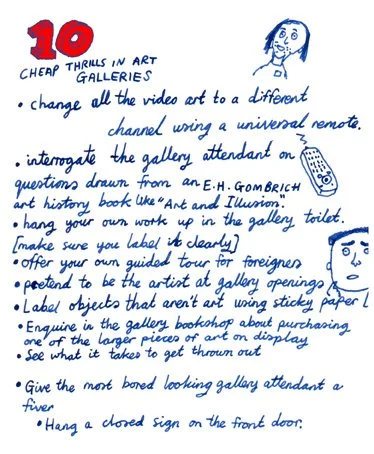 10
CHEAP THRILLS IN ART
GALLERIES
• change all the video art to a different
channel using a universal remote.
• interrogate the gallery attendant on
questions drawn from an E.H. GOMBRICH
art history book like "Art and Illusion".
• hang your own work up in the gallery toilet.
[make sure you label it clearly]
• offer your own guided tour for foreigners
• pretend to be the artist at gallery openings
• Label objects that aren't art using sticky paper
• Enquire in the gallery bookshop about purchasing
one of the larger pieces of art on display
• See what it takes to get thrown out
• Give the most bored looking gallery attendant a
fiver
• Hang a closed sign on the front door.